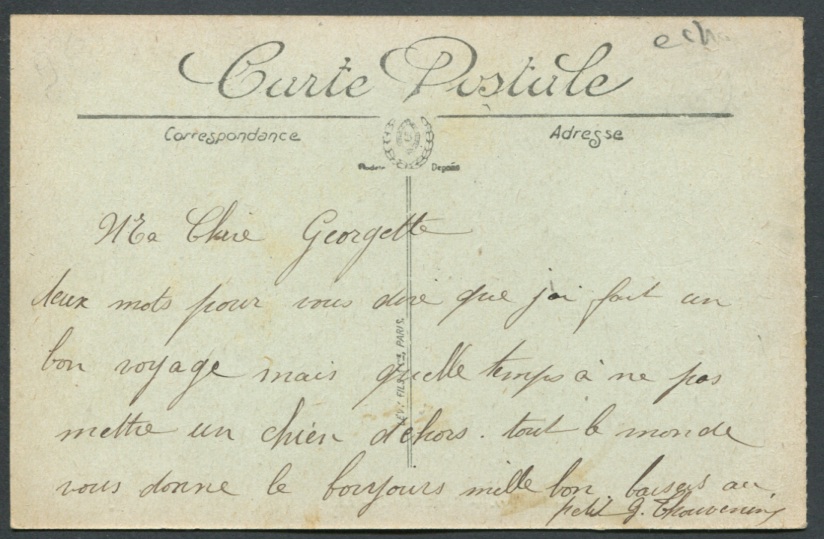 ech
Carte Postale
Correspondance
Adresse
Déposée
LÉV. FILS & Cie, PARIS.
Ma Chere Georgette
deux mots pour vous dire que j'ai fait un
bon voyage mais quelle temps a ne pas
mettre un chien dehors. tout le monde
vous donne le bonjours mille bon baisers au
petit G. Thouvenin